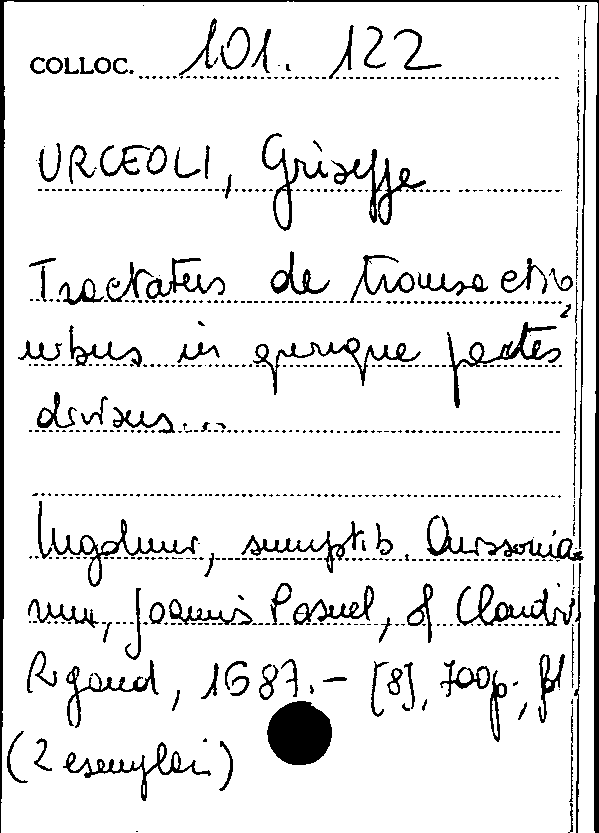 COLLOC. 101. 122
URCEOLI, Griseffe
Tractatus de transactio
nibus in quinque partes
divisus...
Lugduni, sumptib. Anissonia
num, Joannis Posuel, & Claudii
Rigaud, 1687.- [8], 700p., fol
(2 esemplari)